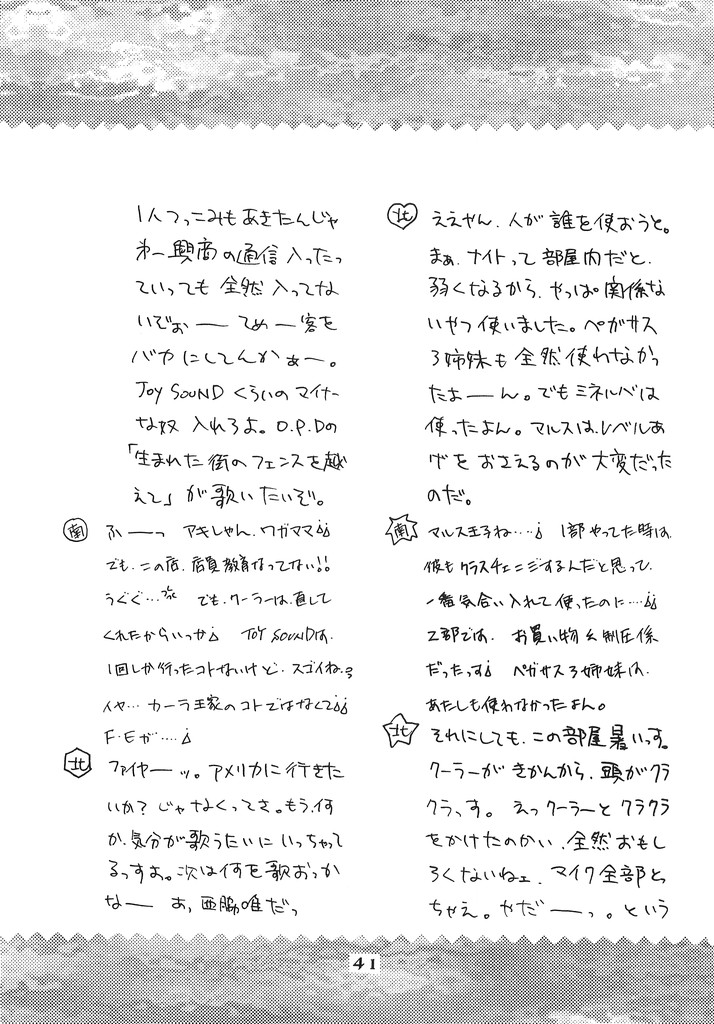 北 ええやん、人が誰を使おうと。
まぁ、ナイトって部屋内だと、
弱くなるから、やっぱ関係な
いやつ使いました。ペガサス
3姉妹も全然使わなかっ
たよーん。でもミネルバは
使ったよん。マルスは、レベルあ
げをおさえるのが大変だった
のだ。
南 マルス王子ね‥‥¡ 1部やってた時は、
彼もクラスチェンジするんだと思って、
一番気合い入れて使ったのに‥‥¡¡
2部では、お買い物&制圧係
だったっす¡ ペガサス3姉妹は、
あたしも使わなかったよん。
北 それにしても、この部屋暑いっす。
クーラーがきかんから、頭がクラ
クラっす。えっクーラーとクラクラ
をかけたのかい、全然おもし
ろくないねェ、マイク全部とっ
ちゃえ。やだーっ。という
1人つっこみもあきたんじゃ
わー興商の通信入ったっ
ていっても全然入ってな
いぞぉーてめー客を
バカにしてんかぁー。
JOY SOUNDくらいのマイナー
な奴入れろよ。O.P.Dの
「生まれた街のフェンスを越
えて」が歌いたいぞ。
南 ふーっ アキしゃん、ワガママ¡¡
でも、この店、店員教育なってない!!
うぐぐ… でも、クーラーは、直して
くれたからいっか¡ JOY SOUNDは、
1回しか行ったコトないけど、スゴイね。
イヤ…カーラ王家のコトではなくて¡¡
F・Eが‥‥¡
北 ファイヤーッ。アメリカに行きた
いか?じゃなくってさ。もう、何
か、気分が歌うたいにいっちゃって
るっすよ。次は何を歌おっか
なー あ、西脇唯だっ
41